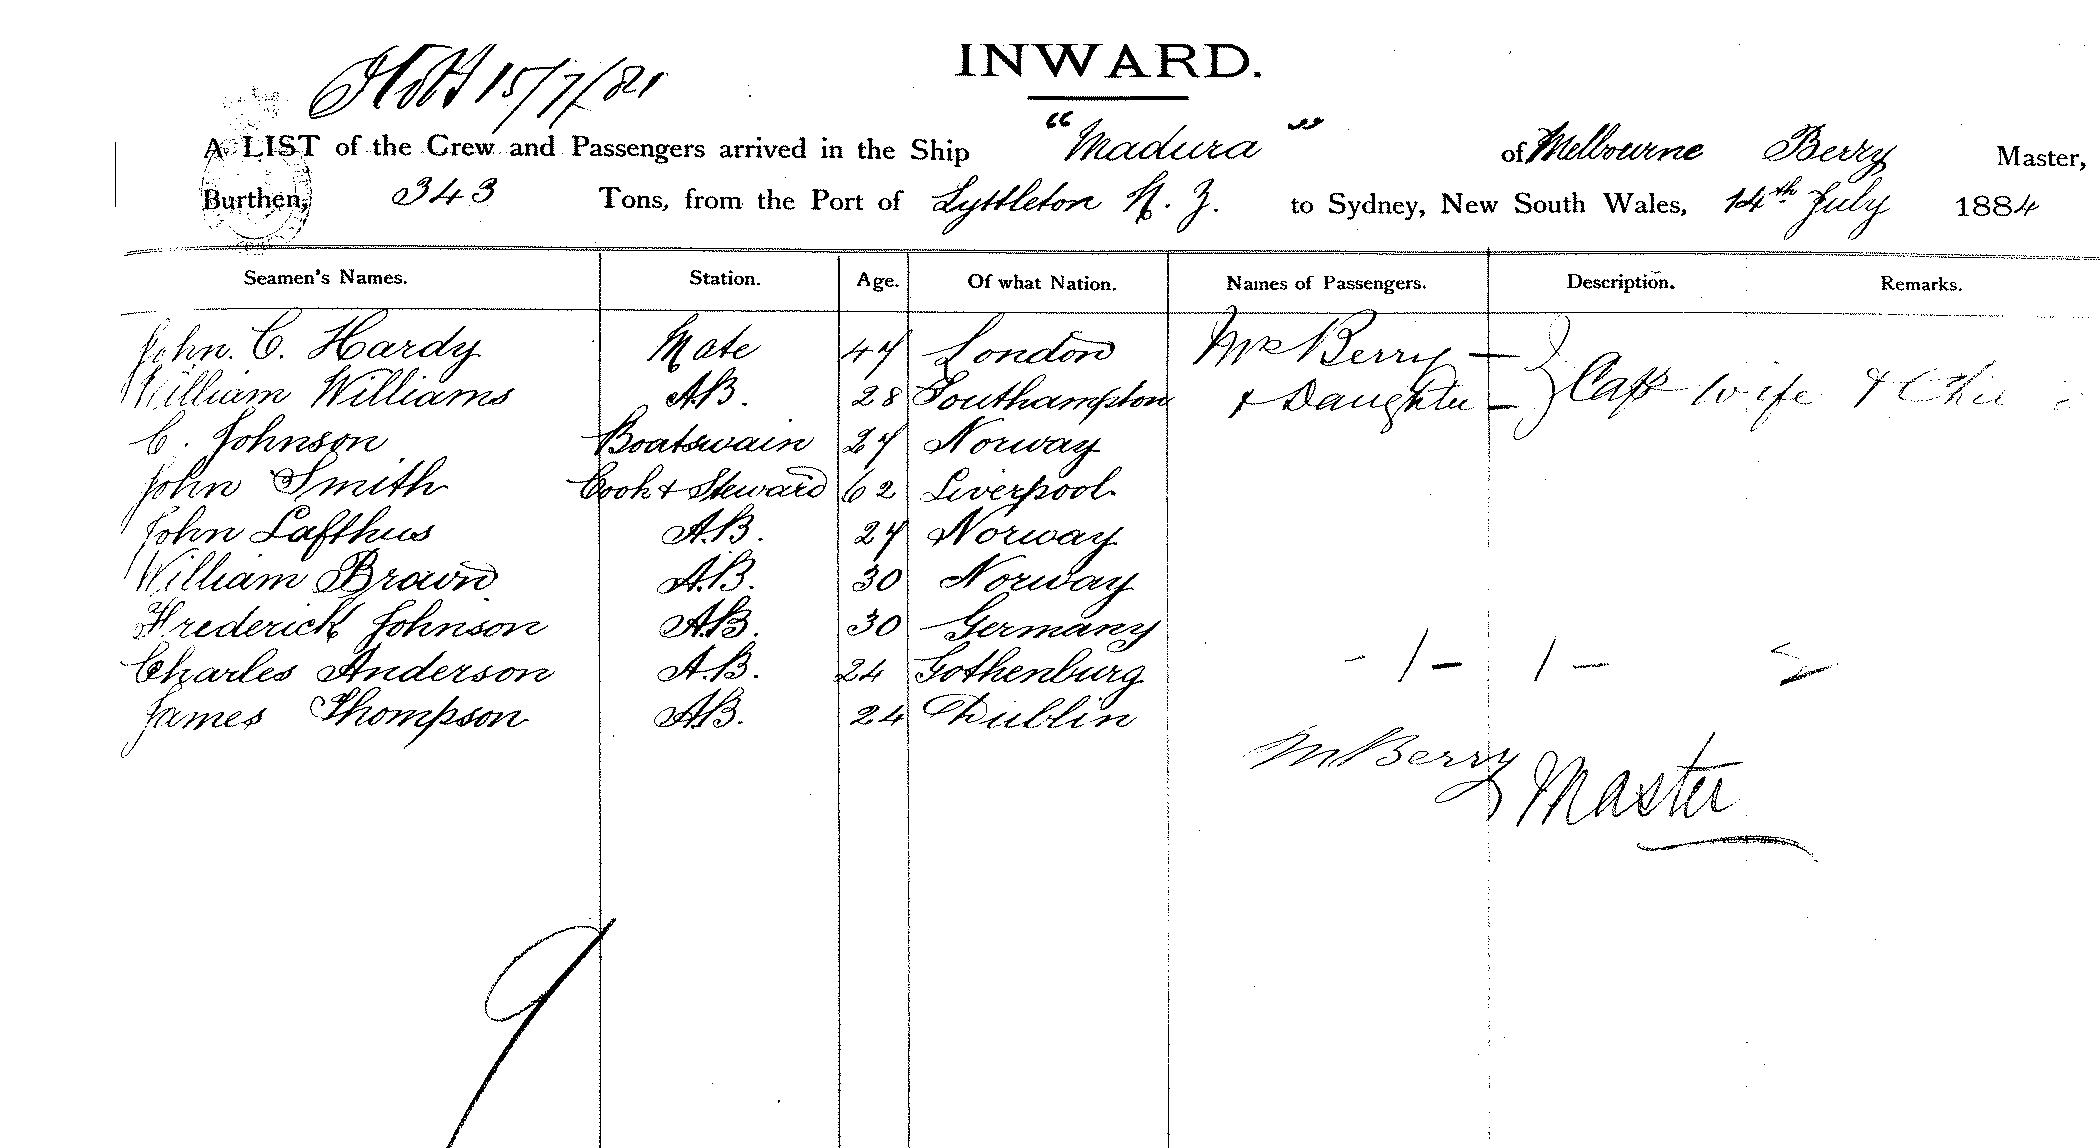 INWARD.
15/7/81
A LIST of the Crew and Passengers arrived in the Ship "Madura" of Melbourne Berry Master,
Burthen, 343 Tons, from the Port of Lyttleton N. Z. to Sydney, New South Wales, 14th July 1884
Seamen's Names. Station. Age. Of what Nation. Names of Passengers. Description. Remarks.
John. C. Hardy Mate 47 London Mrs Berry
William Williams AB. 28 Southampton & Daughter Capt wife &
C. Johnson Boatswain 27 Norway
John Smith Cook & Steward 62 Liverpool
John Lafthus A.B. 27 Norway
William Brown A.B. 30 Norway
Frederick Johnson A.B. 30 Germany
Charles Anderson A.B. 24 Gothenburg - 1 - 1 -
James Thompson A.B. 24 Dublin
M Berry
Master
9